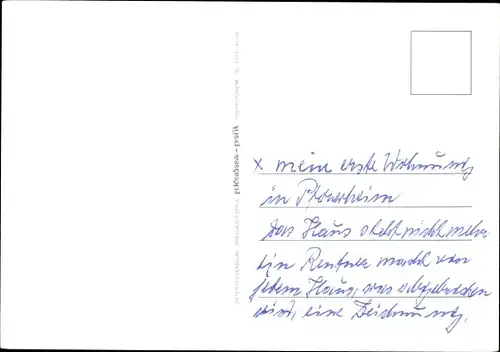 x mein erste Wohnung
in Pforzheim
das Haus steht nicht mehr
Ein Rentner macht von
jedem Haus, was abgebrochen
wird, eine Zeichnung.